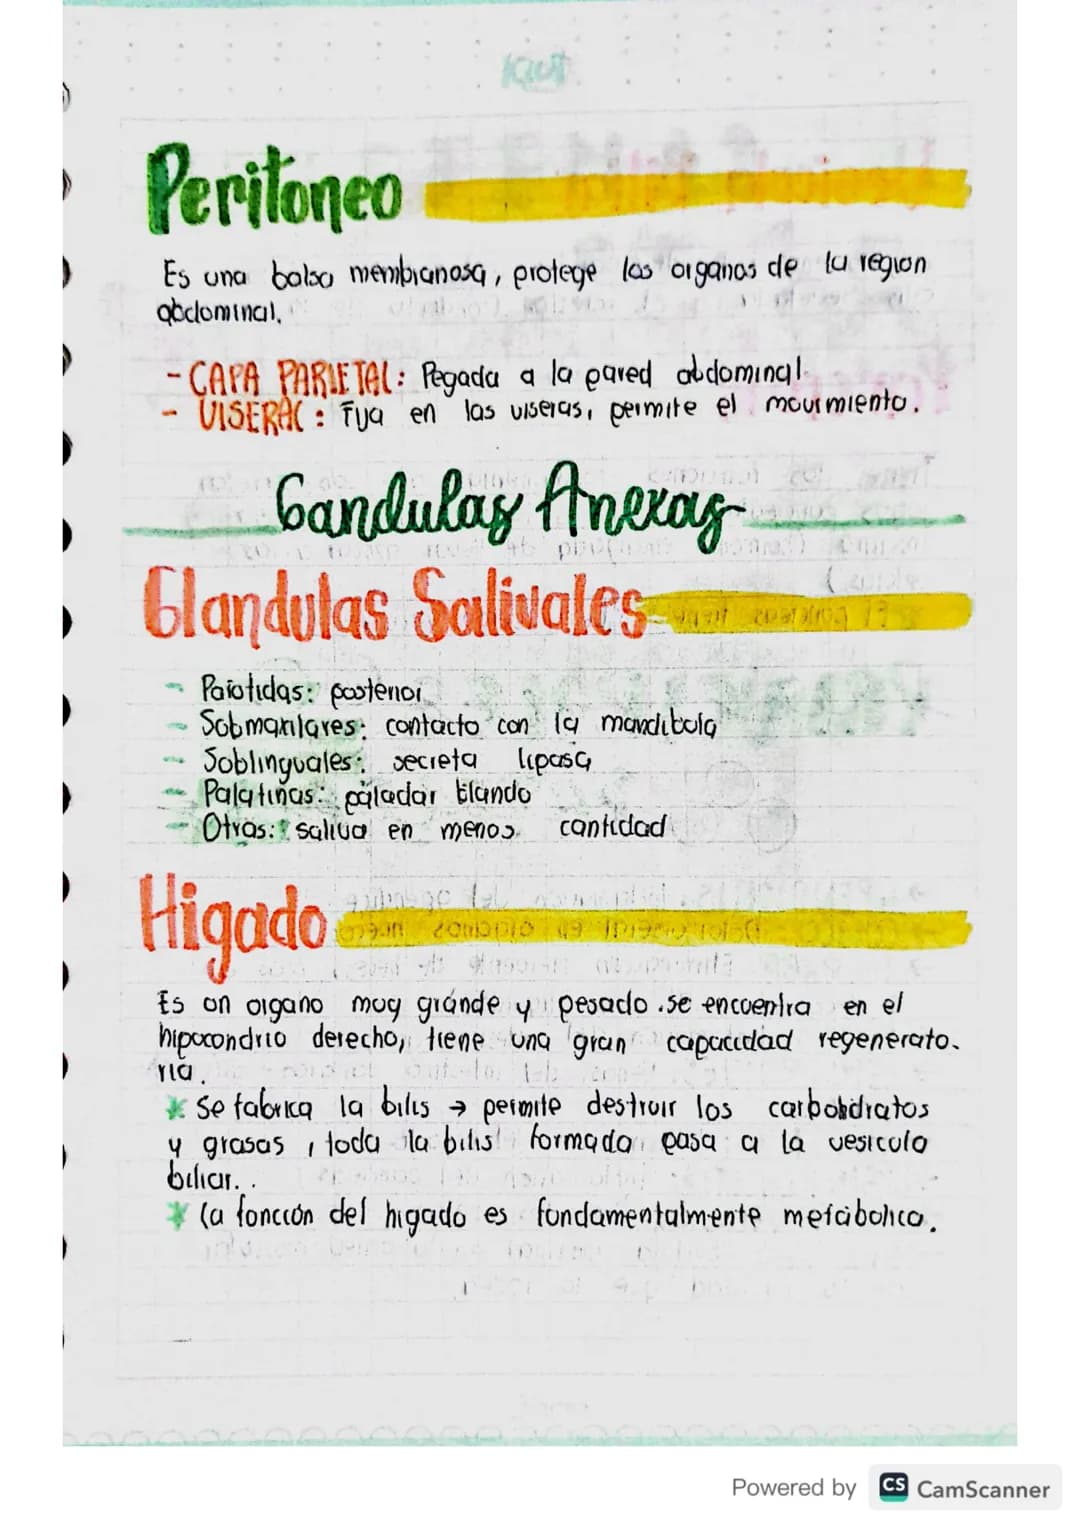 Kiut
Peritoneo
Es una bolsa membranosa, protege los organos de la region
abdominal.
- CAPA PARIETAL: Pegada a la pared abdominal.
- VISERAL: Fija en las viseras, permite el movimiento.
Gandulas Anexas
Glandulas Salivales
- Parotidas: posterior
- Submaxilares: contacto con la mandibula
- Sublinguales: secreta lipasa
- Palatinas: paladar blando
- Otras: saliva en menos cantidad
Higado
Es un organo muy grande y pesado. se encuentra en el
hipocondrio derecho, tiene una gran capacidad regenerato-
ria.
* Se fabrica la bilis → permite destruir los carbohidratos
y grasas, toda la bilis formada pasa a la vesicula
biliar..
* La función del higado es fundamentalmente metabolica.
Powered by CS CamScanner